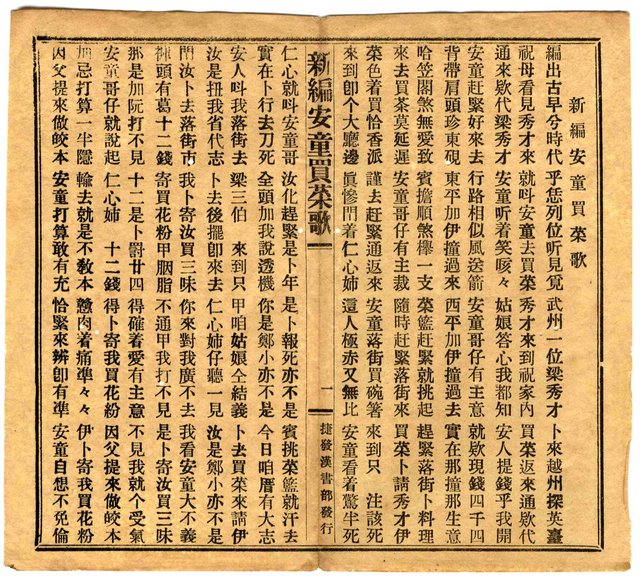 新編安童買菜歌
編出古早兮時代 乎恁列位听見覓 武州一位梁秀才 卜來越州探英臺
祝母看見秀才來 就叫安童去買菜 秀才來到祝家內 買菜返來通欵代
通來欵代梁秀才 安童听着笑咳々 姑娘答心我都知 安人提錢乎我開
安童赶緊好來去 行路相似風送箭 安童哥仔有主意 就欵現錢四千四
背帶肩頭珍東硯 東平加伊撞過來 西平加伊撞過去 實在那撞那生意
哈笠閣煞無愛致 賓擔順煞櫸一支 菜籃赶緊就挑起 趕緊落街卜料理
來去買茶莫延遲 安童哥仔有主裁 隨時赶緊落街來 買菜卜請秀才伊
菜色着買恰香派 謹去赶緊通返來 安童落街買碗箸 來到只 注該死
來到卽个大廳邊 眞慘門着仁心姉 這人極赤又無比 安童看着驚半死
新編安童買菜歌 一 捷發漢書部發行
仁心就叫安童哥 汝化趕緊是卜年 是卜報死亦不是 賓挑菜籃就汗去
實在卜行去刀死 全頭加我說透機 你是鄭小亦不是 今日咱厝有大志
安人叫我落街去 梁三伯 來到只 甲咱姑娘仝結義 卜去買菜來請伊
汝是扭我省代志 卜去後擺卽來去 仁心姉仔聽一見 汝是鄭小亦不是
門汝卜去落街市 我卜寄汝買三味 你來對我廣不去 我看安童大不義
褲頭有葛十二錢 寄買花粉甲胭脂 不通甲我打不見 是卜寄汝買三味
那是加阮打不見 十二是卜罰廿四 得確着愛有主意 不見我就个受氣
安童哥仔就說起 仁心姉 十二錢 得卜寄我買花粉 因父提來做皎本
加忌打算一半隱 輸去就是不敎本 戇肉着痛準々々 伊卜寄我買花粉
因父提來做皎本 安童打算敢有充 恰緊來辨卽有準 安童自想不免倫